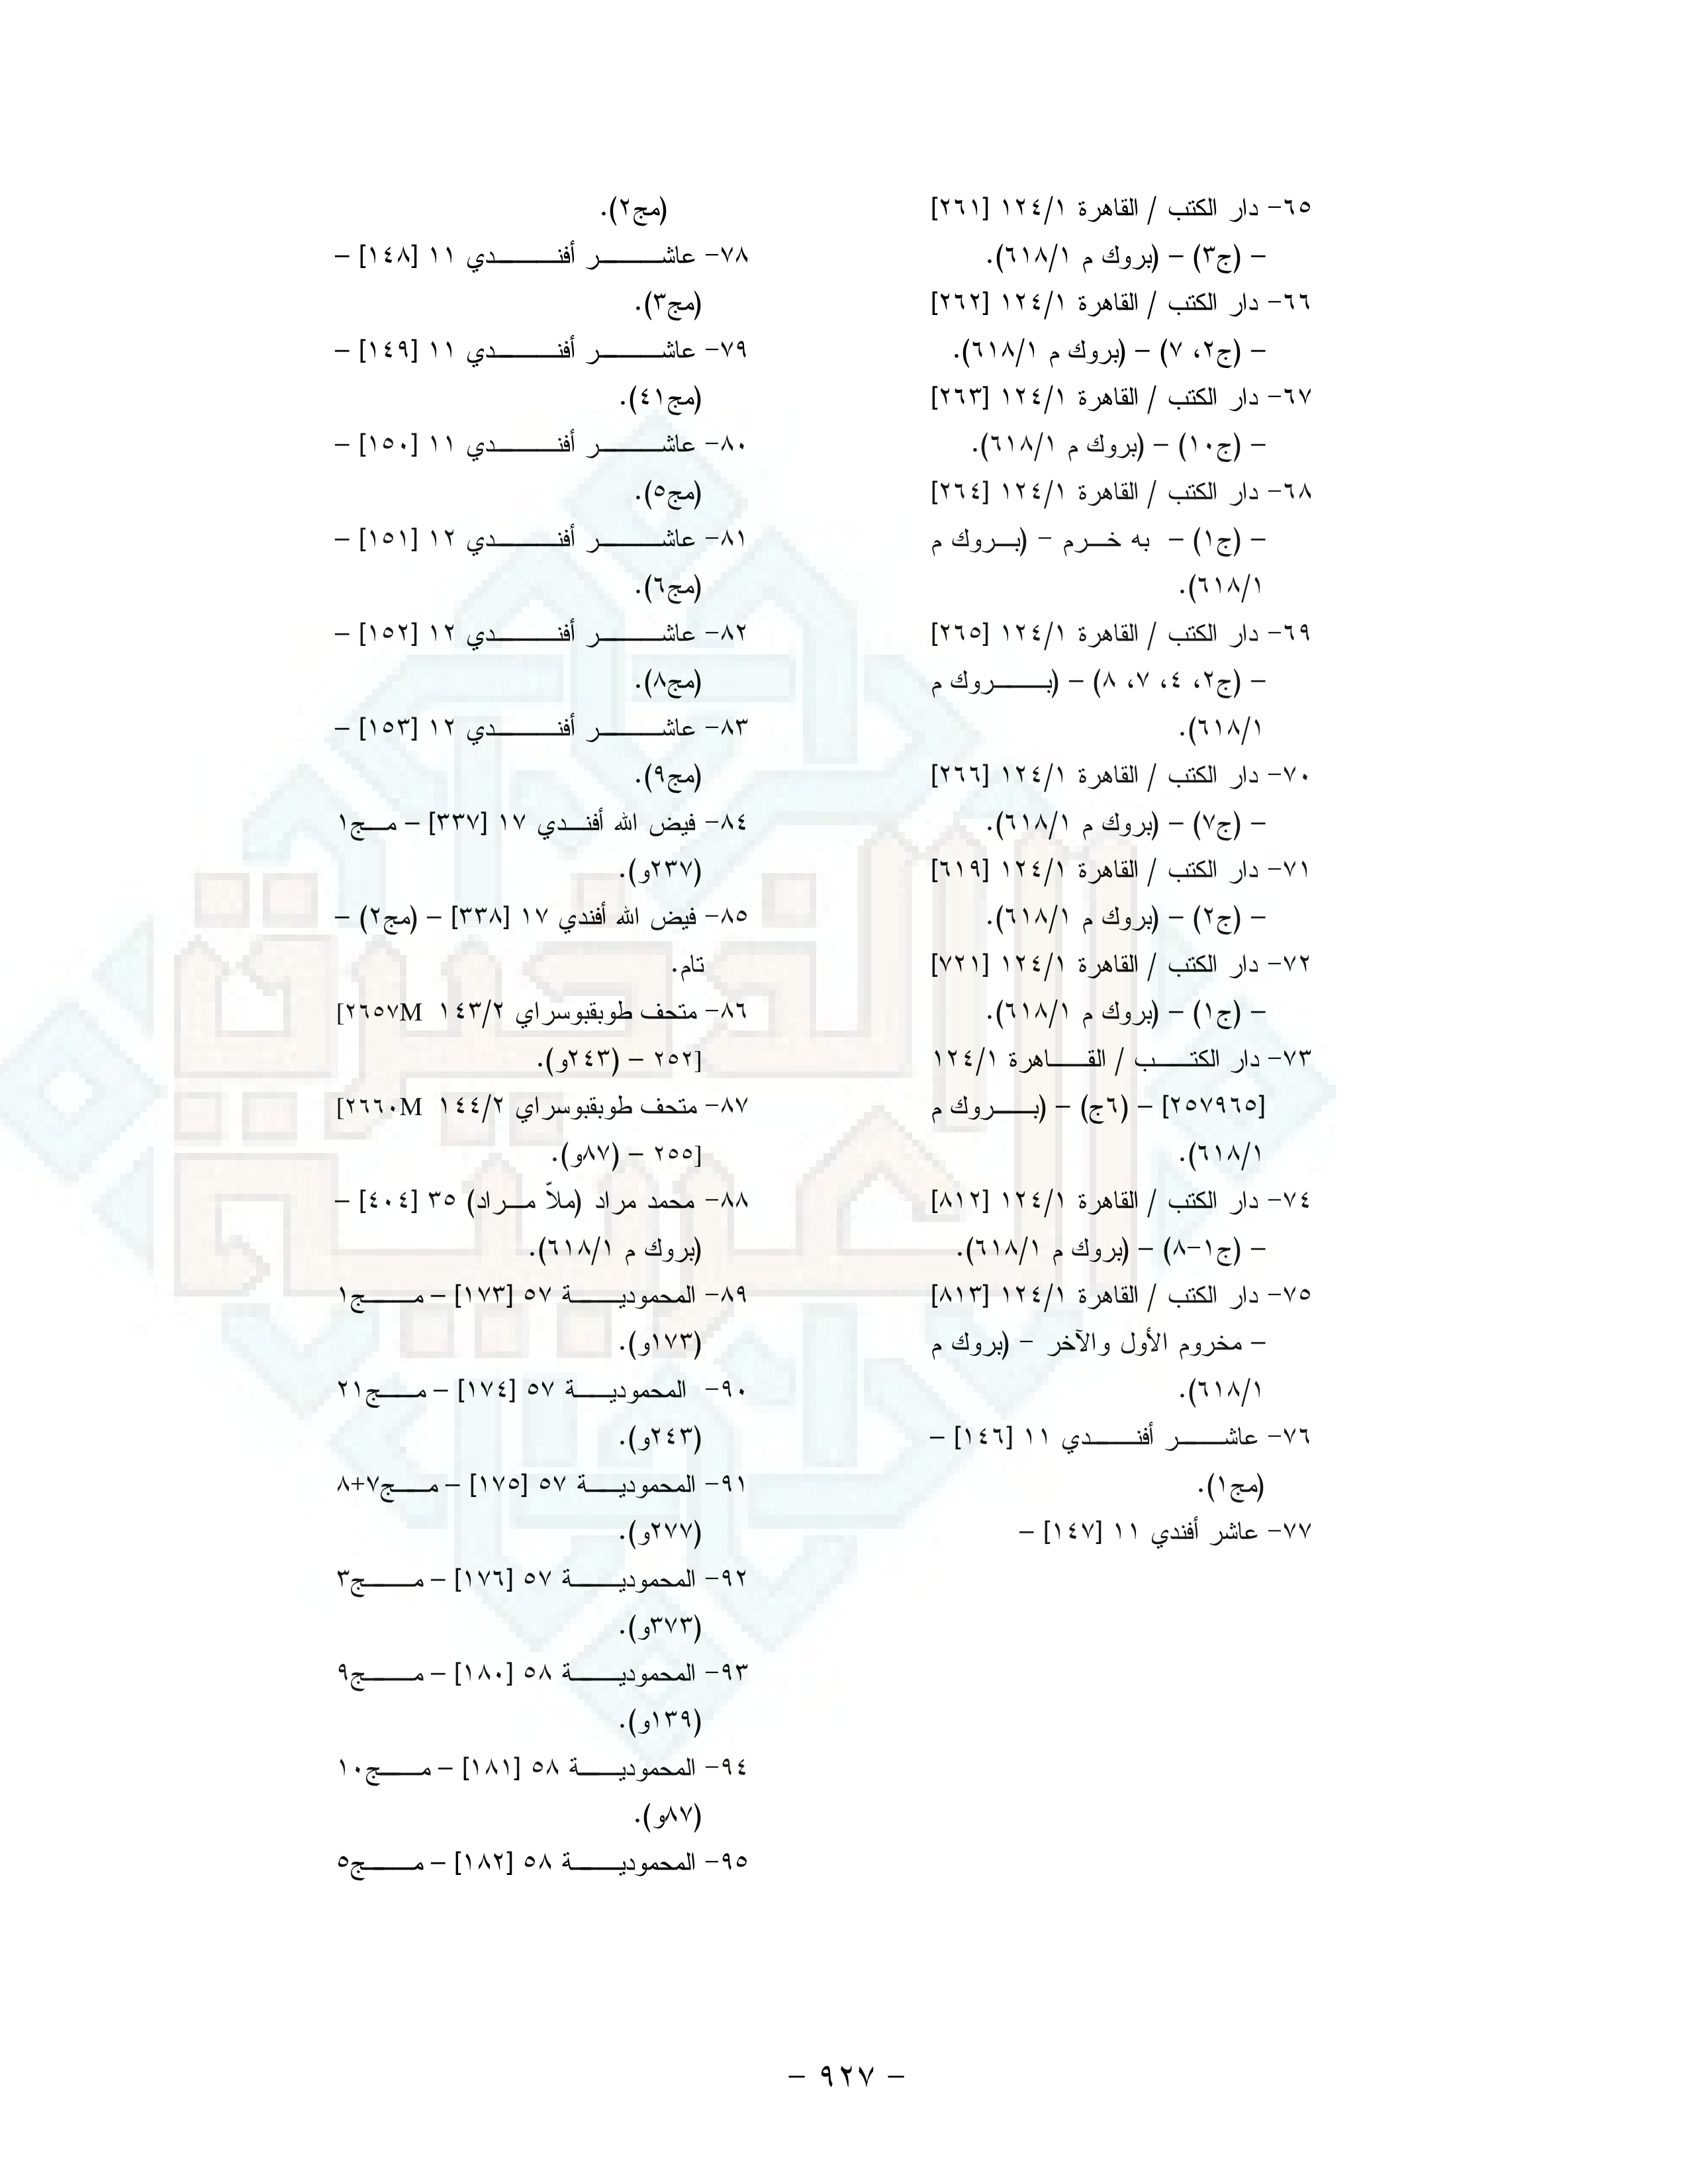 ٦٥- دار الكتب / القاهرة ١٢٤/١ [٢٦١]
– (ج٣) – (بروك م ٦١٨/١).
٦٦- دار الكتب / القاهرة ١٢٤/١ [٢٦٢]
– (ج٢، ٧) – (بروك م ٦١٨/١).
٦٧- دار الكتب / القاهرة ١٢٤/١ [٢٦٣]
– (ج١٠) – (بروك م ٦١٨/١).
٦٨- دار الكتب / القاهرة ١٢٤/١ [٢٦٤]
– (ج١) – به خرم – (بروك م
٦١٨/١).
٦٩- دار الكتب / القاهرة ١٢٤/١ [٢٦٥]
– (ج٢، ٤، ٧، ٨) – (بروك م
٦١٨/١).
٧٠- دار الكتب / القاهرة ١٢٤/١ [٢٦٦]
– (ج٧) – (بروك م ٦١٨/١).
٧١- دار الكتب / القاهرة ١٢٤/١ [٦١٩]
– (ج٢) – (بروك م ٦١٨/١).
٧٢- دار الكتب / القاهرة ١٢٤/١ [٧٢١]
– (ج١) – (بروك م ٦١٨/١).
٧٣- دار الكتب / القاهرة ١٢٤/١
[٢٥٧٩٦٥] – (٦ج) – (بروك م
٦١٨/١).
٧٤- دار الكتب / القاهرة ١٢٤/١ [٨١٢]
– (ج١-٨) – (بروك م ٦١٨/١).
٧٥- دار الكتب / القاهرة ١٢٤/١ [٨١٣]
– مخروم الأول والآخر – (بروك م
٦١٨/١).
٧٦- عاشر أفندي ١١ [١٤٦] –
(مج١).
٧٧- عاشر أفندي ١١ [١٤٧] –
(مج٢).
٧٨- عاشر أفندي ١١ [١٤٨] –
(مج٣).
٧٩- عاشر أفندي ١١ [١٤٩] –
(مج٤١).
٨٠- عاشر أفندي ١١ [١٥٠] –
(مج٥).
٨١- عاشر أفندي ١٢ [١٥١] –
(مج٦).
٨٢- عاشر أفندي ١٢ [١٥٢] –
(مج٨).
٨٣- عاشر أفندي ١٢ [١٥٣] –
(مج٩).
٨٤- فيض الله أفندي ١٧ [٣٣٧] – مج١
(٢٣٧و).
٨٥- فيض الله أفندي ١٧ [٣٣٨] – (مج٢) –
تام.
٨٦- متحف طوبقبوسراي ١٤٣/٢ ٢٦٥٧M]
[٢٥٢ – (٢٤٣و).
٨٧- متحف طوبقبوسراي ١٤٤/٢ ٢٦٦٠M]
[٢٥٥ – (٨٧و).
٨٨- محمد مراد (ملاّ مراد) ٣٥ [٤٠٤] –
(بروك م ٦١٨/١).
٨٩- المحمودية ٥٧ [١٧٣] – مج١
(١٧٣و).
٩٠- المحمودية ٥٧ [١٧٤] – مج٢١
(٢٤٣و).
٩١- المحمودية ٥٧ [١٧٥] – مج٧+٨
(٢٧٧و).
٩٢- المحمودية ٥٧ [١٧٦] – مج٣
(٣٧٣و).
٩٣- المحمودية ٥٨ [١٨٠] – مج٩
(١٣٩و).
٩٤- المحمودية ٥٨ [١٨١] – مج١٠
(٨٧و).
٩٥- المحمودية ٥٨ [١٨٢] – مج٥
– ٩٢٧ –